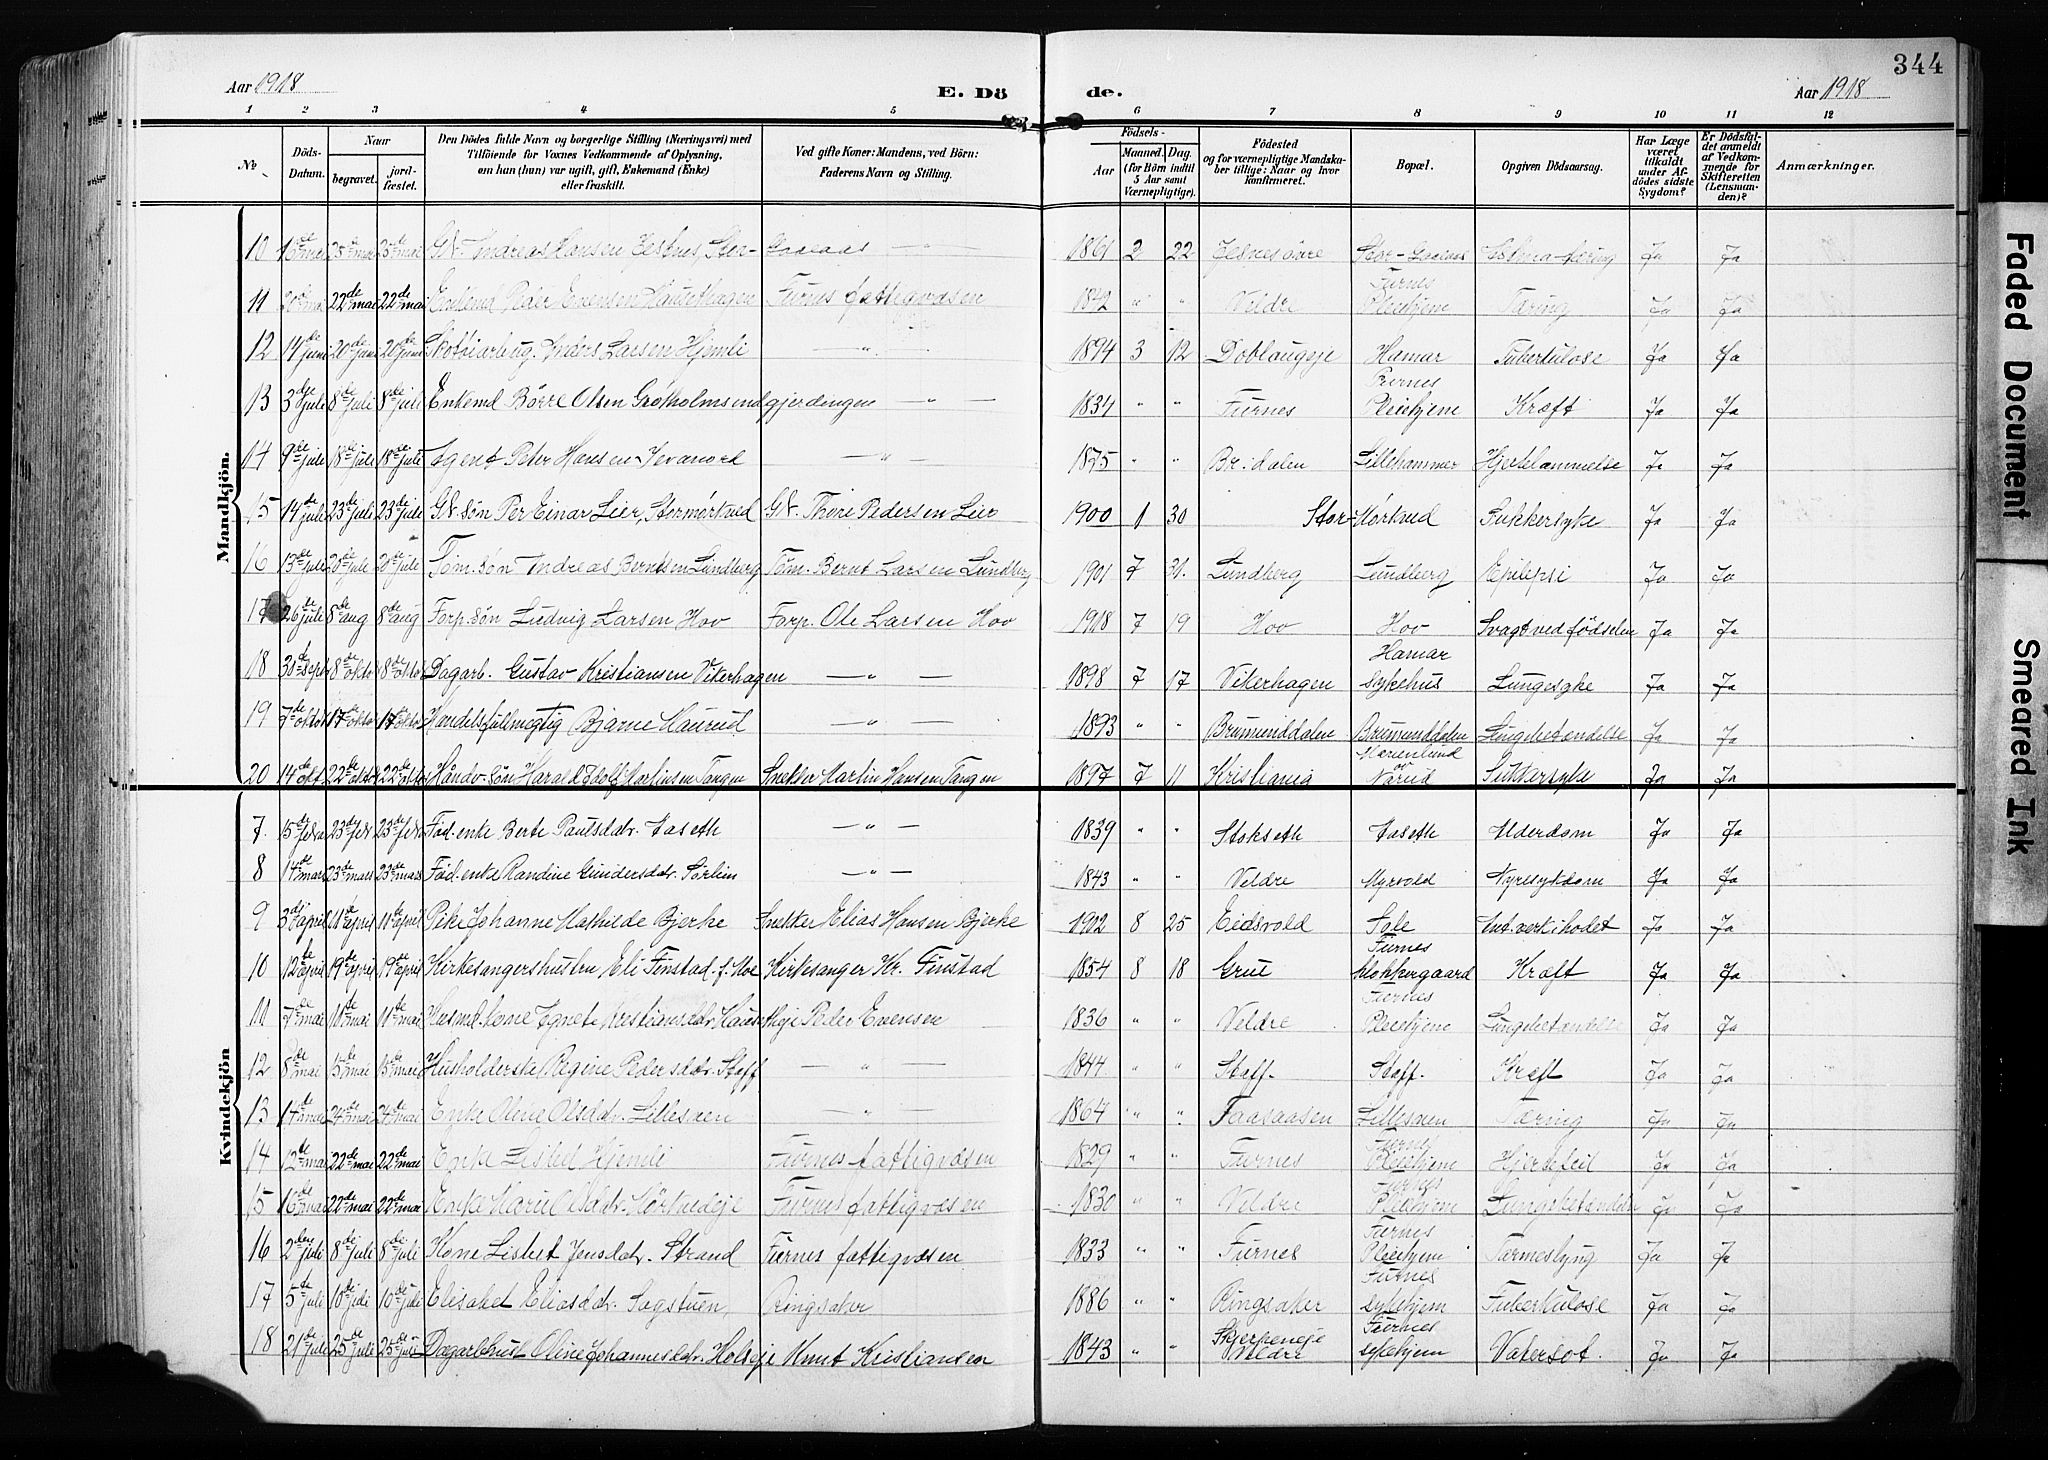 344
Aar 1918 E. Dö de. Aar 1918
1 2 3 4 5 6 7 8 9 10 11 12
№ Döds-Datum. Naar begravet. jordfæstet. Den Dödes fulde Navn og borgerlige Stilling (Næringsvei) med Tilföiende for Voxnes Vedkommende af Oplysning, om han (hun) var ugift, gift, Enkemand (Enke) eller fraskilt. Ved gifte Koner: Mandens, ved Börn: Faderens Navn og Stilling. Födsels- Aar Maaned. Dag. (for Börn indtil 5 Aar samt Værnepligtige). Födested og for værnepligtige Mandskaber tillige: Naar og hvor konfirmeret. Bopæl. Opgiven Dödsaarsag. Har Læge været tilkaldt under Afdödes sidste Sygdom? Er Dödsfaldet anmeldt af Vedkommende for Skifteretten (Lensmanden)? Anmærkninger.
Mandkjön.
10 16de mai 25de mai 25de mai Gbr. Andreas Hansen Jesnes, Stor- — " — 1861 2 22 Jesnes övre Ja Ja
11 20de mai 22de mai 22de mai Peder Evensen Hausthagen Furnes fattigvæsen 1842 " " Veldre Furnes Pleiehjem Tæring Ja Ja
12 14de juni 20de juni 20de juni Skotöiarb. ug. Anders Larsen Hjemli — " — 1894 3 12 Doblaugeje Hamar Tuberkulose Ja Ja
13 3die juli 8de juli 8de juli Enkemd Börre Olsen Grötholmsundgjerdengen — " — 1834 " " Furnes Furnes Pleiehjem Kræft Ja Ja
14 9de juli 18de juli 18de juli Agent Peter Hansen — " — 1875 " " Br.dalen Lillehammer Hjertelammelse Ja Ja
15 14de juli 23de juli 23de juli Gbr. sön Per Einar Lier, Stormörkved Gbr. Thore Pedersen Lier 1900 1 30 Stor-Mörkved Sukkersyke Ja Ja
16 13de juli 20de juli 20de juli Töm. sön Andreas Berntsen Lundberg Töm. Bernt Larsen Lundberg 1901 7 31. Lundberg Lundberg Epilepsi Ja Ja
17 26de juli 8de aug 8de aug Forp. sön Ludvig Larsen Hov Forp. Ole Larsen Hov 1918 7 19 Hov Hov Svagt ved födselen Ja Ja
18 30de sept 8de okto 8de okto Dagarb. Gustav Kristiansen Vikerhagen — " — 1898 7 17 Vikerhagen Hamar sykehus Lungesyke Ja Ja
19 7de oktob 17de okto 17de okto Handelsfuldmegtig Bjarne Haurud — " — 1893 " " Brumunddalen Brumunddalen Lungebetændelse Ja Ja
20 14de okt 22de okto 22de okto Håndv. sön Harald Adolf Martinsen Tangen Snekker Martin Hansen Tangen 1897 7 11 Kristiania Marienlund av Narud Sukkersyke Ja Ja
Kvindekjön
7 15de febr 23de febr 23de febr Föd. enke Berte Paulsdatr. Aaseth — " — 1839 " " Stokseth Aaseth Alderdom Ja Ja
8 14de mars 23de mars 23de mars Föd. enke Randine Gundersdatr. Sörlien — " — 1843 " " Veldre Myrvold Nyresykdom Ja Ja
9 3die april 11de april 11de april Pike Johanne Mathilde Bjerke Snekker Elias Hansen Bjerke 1902 8 25 Eidsvold Sole Ant. verk i hodet Ja Ja
10 12de april 19de april 19de april Kirkesangershustru Eli Finstad f. Moe Kirkesanger Kr. Finstad 1854 8 18 Grue Furnes klokkergaard Kræft Ja Ja
11 7de mai 11de mai 11de mai Husmd. kone Agnete Kristiansdatr. Haust- Peder Evensen 1836 " " Veldre Furnes Pleiehjem Lungebetændelse Ja Ja
12 8de mai 15de mai 15de mai Husholderske Regine Pedersdatr. Staff — " — 1844 " " Staff. Staff. Kræft Ja Ja
13 14de mai 24de mai 24de mai Enke Oline Olsdatr. Lillesæen — " — 1864 " " Faasaasen Lillesæen Tæring Ja Ja
14 12de mai 22de mai 22de mai Enke Lisbet Hjemli Furnes fattigvæsen 1829 " " Furnes Furnes Pleiehjem Hjertefeil Ja Ja
15 16de mai 22de mai 22de mai Enke Marie Olsdatr. Mörkvedeje Furnes fattigvæsen 1830 " " Veldre Furnes Pleiehjem Lungebetændelse Ja Ja
16 2den juli 8de juli 8de juli Kone Lisbet Jensdatr. Strand Furnes fattigvæsen 1833 " " Furnes Furnes Pleiehjem Tarmeslyng Ja Ja
17 5de juli 10de juli 10de juli Elisabet Eliasdatr. Sagstuen, Ringsaker 1886 " " Ringsaker Furnes sykehjem Tuberkulose Ja Ja
18 21de juli 25de juli 25de juli Dagarb.hust. Oline Johannesdatr. Holseje Knut Kristiansen 1843 " " Skjerpeneje Veldre Furnes sykehjem Vatersot. Ja Ja
Faded Document
Smeared Ink